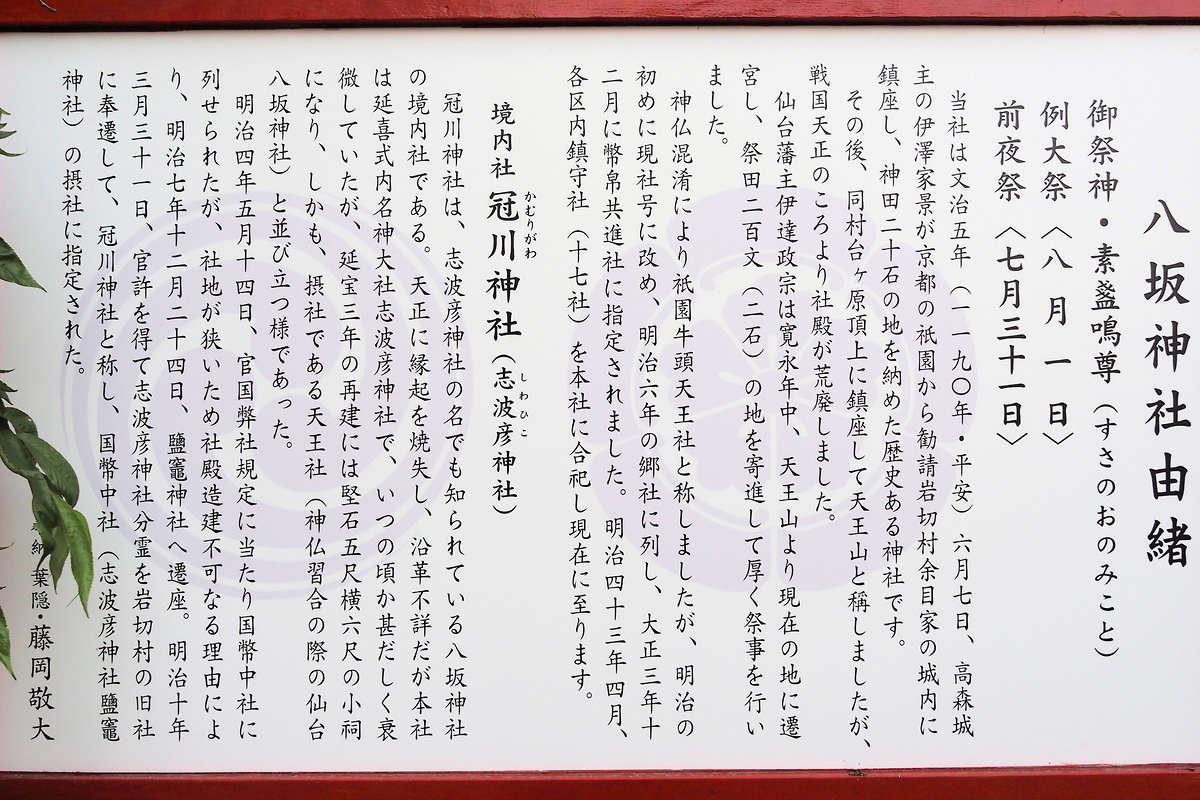 八坂神社由緒
御祭神・素盞鳴尊（すさのおのみこと）
例大祭〈八月一日〉
前夜祭〈七月三十一日〉
当社は文治五年（一一九〇年・平安）六月七日、高森城
主の伊澤家景が京都の祇園から勧請岩切村余目家の城内に
鎮座し、神田二十石の地を納めた歴史ある神社です。
その後、同村台ヶ原頂上に鎮座して天王山と稱しましたが、
戦国天正のころより社殿が荒廃しました。
仙台藩主伊達政宗は寛永年中、天王山より現在の地に遷
宮し、祭田二百文（二石）の地を寄進して厚く祭事を行い
ました。
神仏混淆により祇園牛頭天王社と称しましたが、明治の
初めに現社号に改め、明治六年の郷社に列し、大正三年十
二月に幣帛共進社に指定されました。明治四十三年四月、
各区内鎮守社（十七社）を本社に合祀し現在に至ります。
境内社 冠川神社（志波彦神社）
かむりがわ
しわひこ
冠川神社は、志波彦神社の名でも知られている八坂神社
の境内社である。天正に縁起を焼失し、沿革不詳だが本社
は延喜式内名神大社志波彦神社で、いつの頃か甚だしく衰
微していたが、延宝三年の再建には堅石五尺横六尺の小祠
になり、しかも、摂社である天王社（神仏習合の際の仙台
八坂神社）と並び立つ様であった。
明治四年五月十四日、官国弊社規定に当たり国幣中社に
列せられたが、社地が狭いため社殿造建不可なる理由によ
り、明治七年十二月二十四日、鹽竈神社へ遷座。明治十年
三月三十一日、官許を得て志波彦神社分霊を岩切村の旧社
に奉遷して、冠川神社と称し、国幣中社（志波彦神社鹽竈
神社）の摂社に指定された。
納 葉隠・藤岡敬大